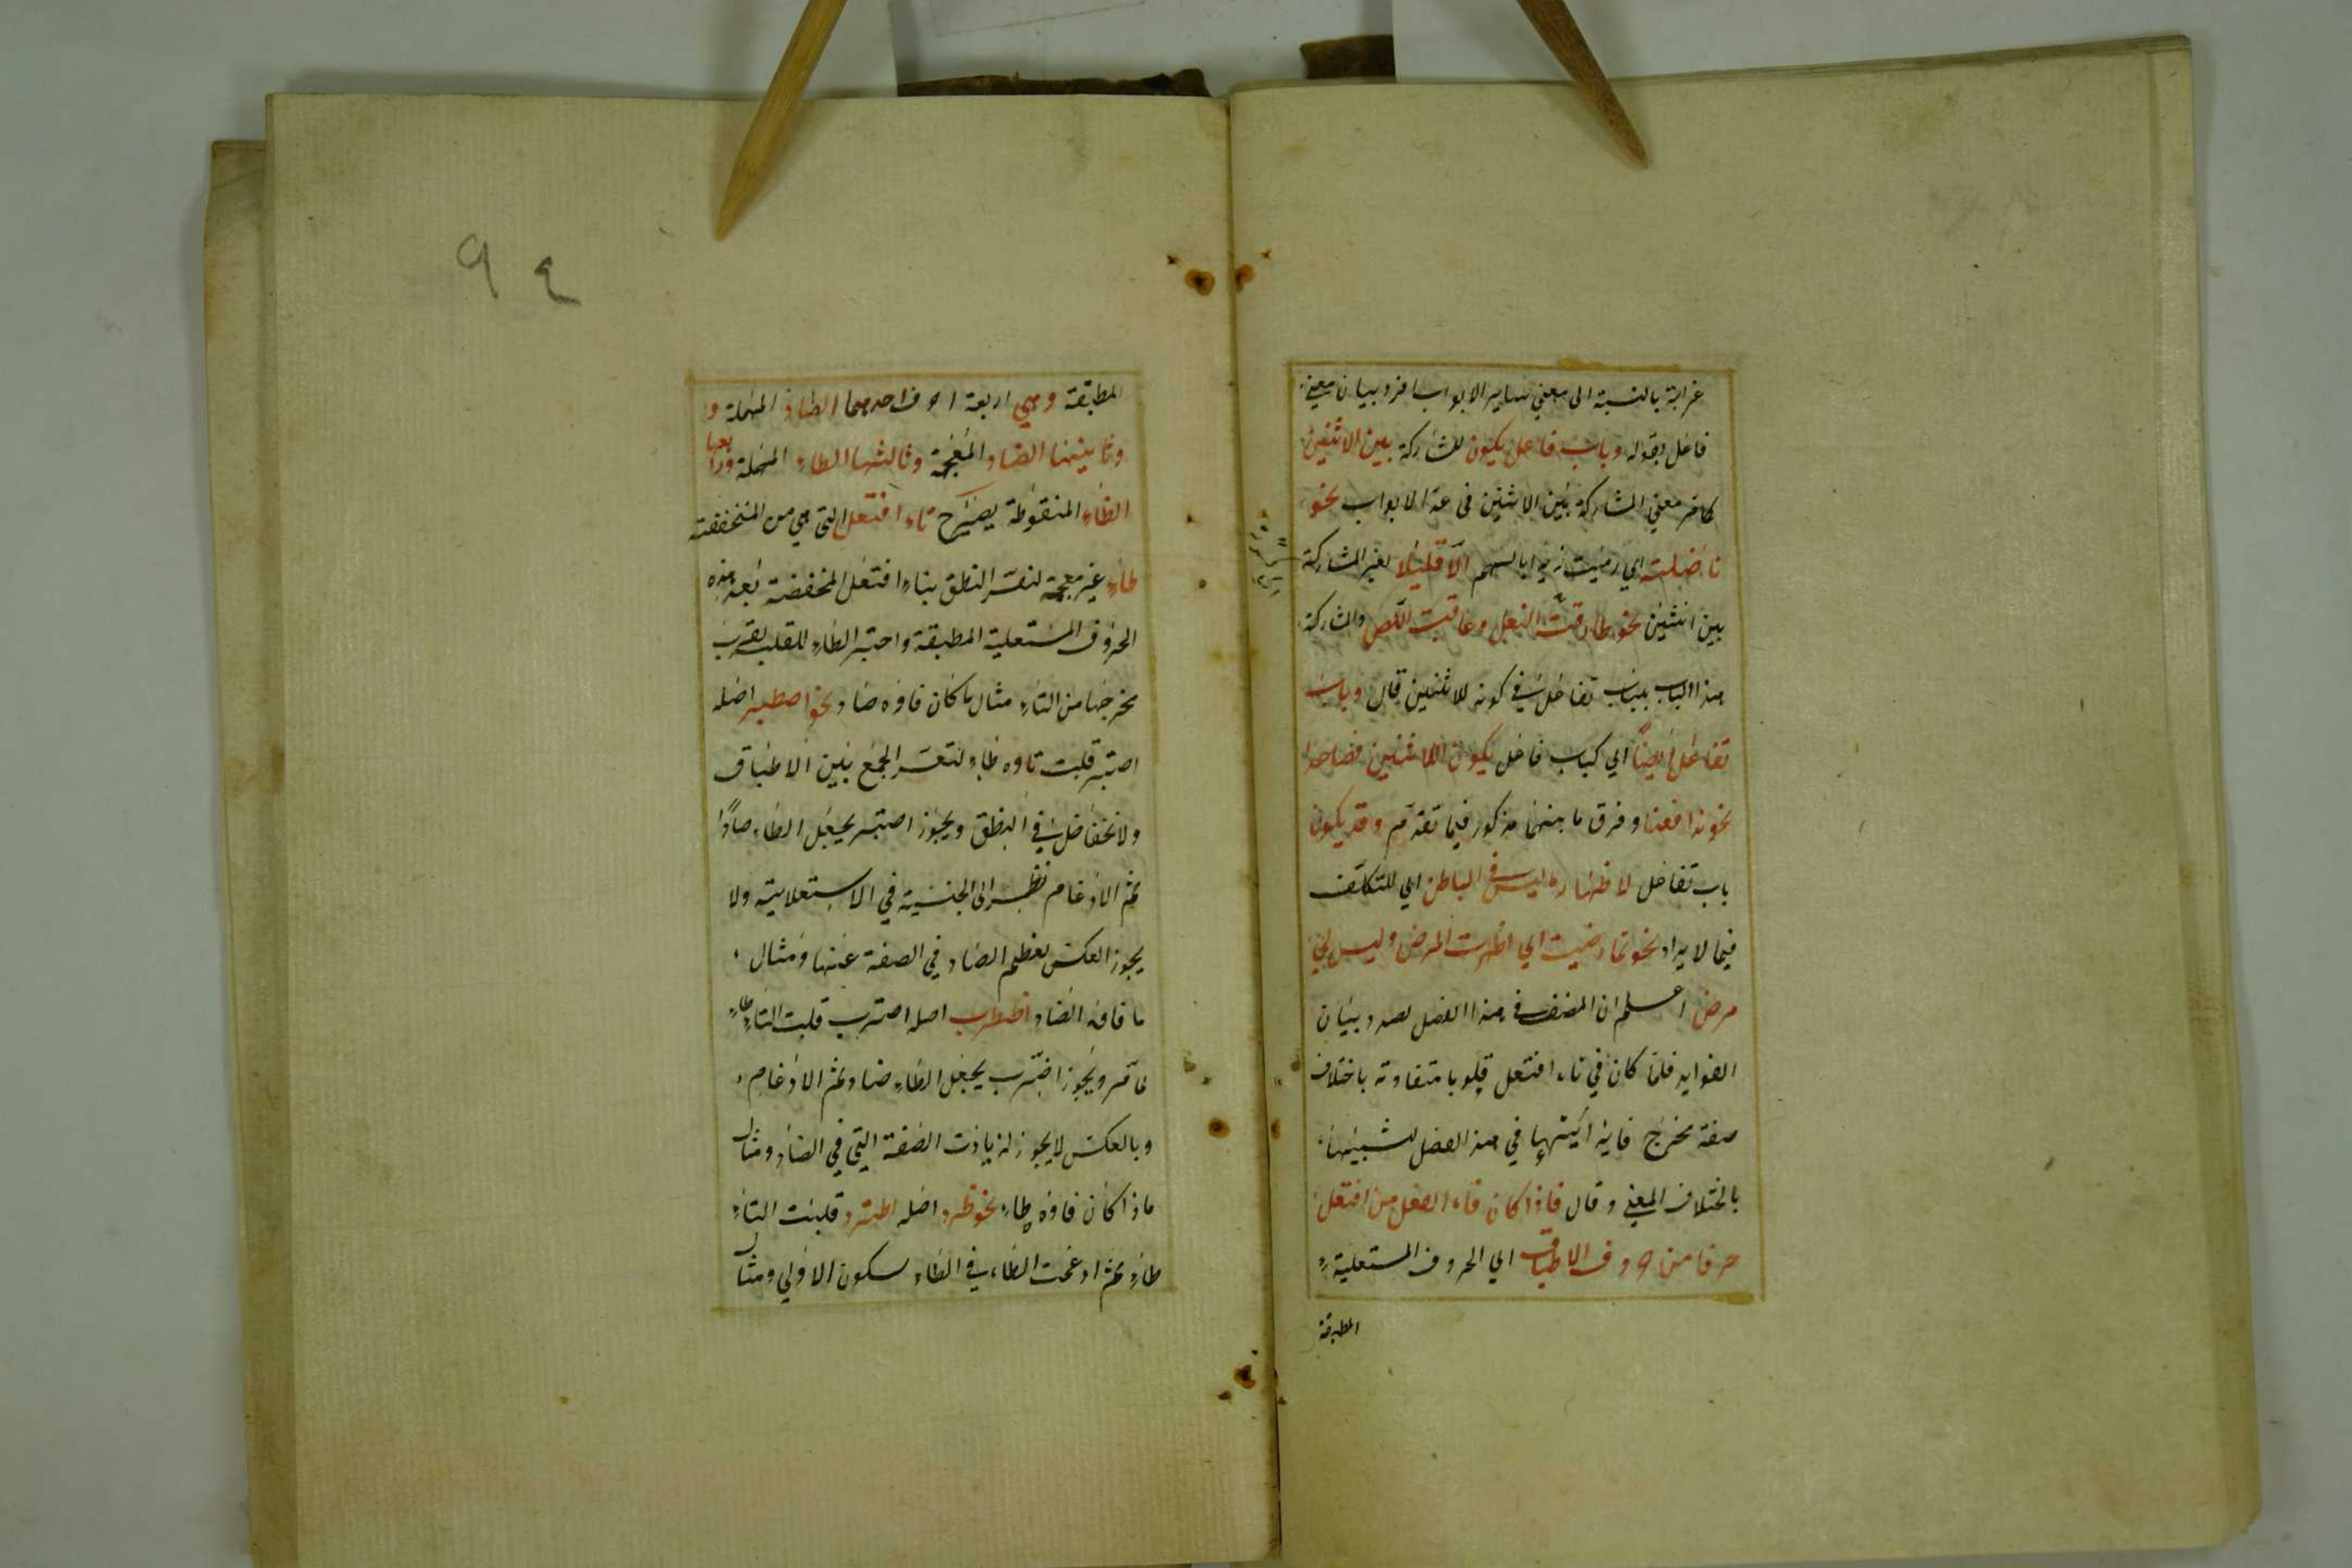 غرابة بالنسبة الى معنى ساير الابواب افرد ببيان معنى
فاعل بقوله وباب فاعل يكون للمشاركة بين الاثنين
كما مر معنى المشاركة بين الاثنين في عد الابواب نحو
ناضلته اي رميت زيدا بالسهم الا قليلا لغير المشاركة
بين اثنين نحو طارقت النعل وعاقبت اللص والمشاركة
هذا الباب بباب تفاعل في كونه للاثنين قال وباب
تفاعل ايضا اي كباب فاعل يكون للاثنين فصاعدا
نحو تدافعنا وفرق ما بينهما مذكور فيما تقدم وقد يكون
باب تفاعل لاظهار ما ليس في الباطن اي للتكلف
فيما لا يراد نحو تمارضت اي اظهرت المرض وليس لي
مرض اعلم ان المصنف في هذا الفصل لصدد بيان
الفوايد فلما كان في تاء افتعل قلوبا متفاوتة باختلاف
صفة مخرج فايه اثبتها في هذا الفصل لشبيهها
باختلاف المعنى وقال فاذا كان فاء الفعل من افتعل
حرفا من حروف الاطباق اي الحروف المستعلية
المطبقة
٩٤
المطبقة وهي اربعة احرف احدهما الصاد المهملة و
وثانيتها الضاد المعجمة وثالثها الطاء المهملة ورابعها
الظاء المنقوطة يصير تاء افتعل التي هي من المنخفضة
طاء غير معجمة لتعسر النطق بتاء افتعل المنخفضة بعد هذه
الحروف المستعلية المطبقة واختير الطاء للقلب لقرب
مخرجها من التاء مثال ما كان فاؤه صاد نحو اصطبر اصله
اصتبر قلبت تاوه طاء لتعسر الجمع بين الاطباق
ولانخفاض في النطق ويجوز اصبر بجعل الطاء صادا
ثم الادغام نظرا الى الجنسية في الاستعلائية ولا
يجوز العكس لعظم الصاد في الصفة عنها ومثال
ما فاؤه الضاد اضطرب اصله اضترب قلبت التاء طاء
لما مر ويجوز اضرب بجعل الطاء ضاد ثم الادغام
وبالعكس لا يجوز لزيادت الصفة التي في الضاد ومثال
ما ذا كان فاؤه طاء نحو طرد اصله اطترد قلبت التاء
طاء ثم ادغمت الطاء في الطاء لسكون الاولى ومثال